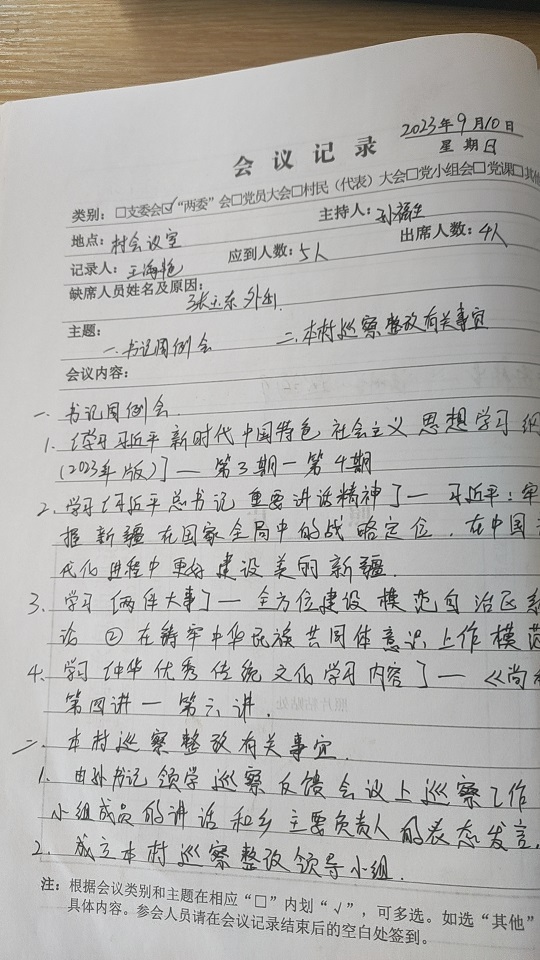 2023年9月10日
会议记录 星期日
类别：□支委会☑“两委”会□党员大会□村民（代表）大会□党小组会□党课□其他
地点：村会议室 主持人：孙福生
记录人：王海艳 应到人数：5人 出席人数：4人
缺席人员姓名及原因：
张玉东 外出.
主题：
一.书记周例会 二.本村巡察整改有关事宜
会议内容：
一. 书记周例会.
1. 《学习习近平新时代中国特色社会主义思想学习纲
(2023年版)》— 第3期—第4期
2. 学习《习近平总书记重要讲话精神》— 习近平：牢
握新疆在国家全局中的战略定位. 在中国
代化进程中更好建设美丽新疆.
3. 学习《两件大事》— 全方位建设模范自治区
论 ② 在铸牢中华民族共同体意识上作模范
4. 学习《中华优秀传统文化学习内容》— 《尚
第四讲 — 第六讲.
二. 本村巡察整改有关事宜.
1. 由孙书记领学巡察反馈会议上巡察工作
小组成员的讲话和乡主要负责人的表态发言.
2. 成立本村巡察整改领导小组.
注：根据会议类别和主题在相应“□”内划“√”，可多选。如选“其他”
具体内容。参会人员请在会议记录结束后的空白处签到。